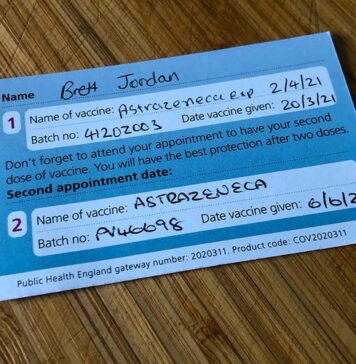 Name Brett Jordan
1 Name of vaccine: Astrazeneca exp 2/4/21
Batch no: 41202003 Date vaccine given: 20/3/21
Don't forget to attend your appointment to have your second
dose of vaccine. You will have the best protection after two doses.
Second appointment date:
2 Name of vaccine: ASTRAZENECA
Batch no: PV46698 Date vaccine given: 6/6/2
Public Health England gateway number: 2020311. Product code: COV2020311